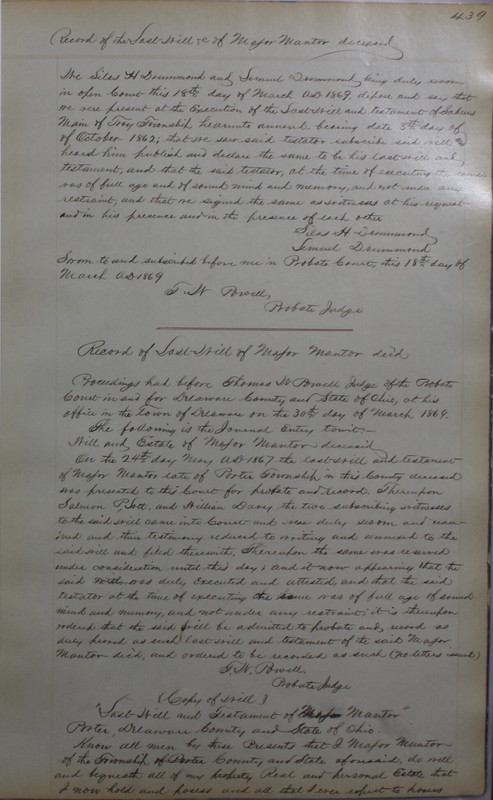 439
Record of the Last Will &c of Major Mantor deceased
We Silas H Drummond and Lemuel Drummond being duly sworn
in open Court this 18th day of March AD 1869, depose and say that
we were present at the Execution of the Last Will and testament of
Mann of Troy Township hereunto annexed bearing date 8th day of
of October 1862; that we saw said testator subscribe said will &
heard him publish and declare the same to be his last will and
testament, and that the said testator, at the time of executing the same
was of full age and of sound mind and memory, and not under any
restraint, and that we signed the same as witnesses at his request
and in his presence and in the presence of each other
Silas H Drummond
Lemuel Drummond
Sworn to and subscribed before me in Probate Court, this 18th day of
March AD 1869
T. W. Powell,
Probate Judge
Record of Last Will of Major Mantor dec'd
Proceedings had before Thomas W Powell Judge of the Probate
Court in and for Delaware County and State of Ohio, at his
office in the Town of Delaware on the 30th day of March 1869.
The following is the Journal Entry towit:-
Will and Estate of Major Mantor deceased
On the 24th day May AD 1867 the last will and testament
of Major Mantor late of Porter Township in this County deceased
was presented to this Court for probate and record. Thereupon
Salmon P. and William Davy the two subscribing witnesses
to the said will came into Court and were duly sworn and exam-
ined and their testimony reduced to writing and annexed to the
said will and filed therewith, Thereupon the same was reserved
under consideration until this day; and it now appearing that the
said will was duly executed and attested, and that the said
testator at the time of executing the same was of full age of sound
mind and memory, and not under any restraint: it is thereupon
ordered that the said will be admitted to probate and record as
duly proved as such last will and testament of the said Major
Mantor dec'd, and ordered to be recorded as such (no letters issued)
T. W. Powell.
Probate Judge
(Copy of Will)
"Last Will and Testament of Major Mantor"
Porter, Delaware County and State of Ohio.
Know all men by these Presents that I Major Mantor
of the Township of Porter County and State aforesaid, do will
and bequeath all of my property Real and personal Estate that
I now hold and possess and all that I ever expect to possess